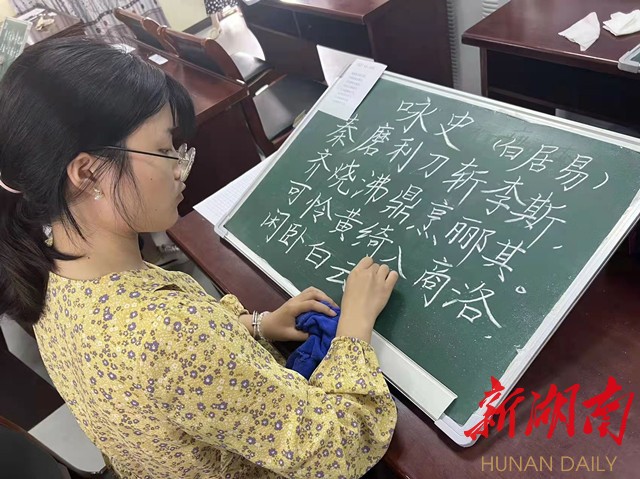 咏史（白居易）
秦磨利刀斩李斯，
齐烧沸鼎烹郦其。
可怜黄绮入商洛，
闲卧白云
新湖南
HUNAN DAILY